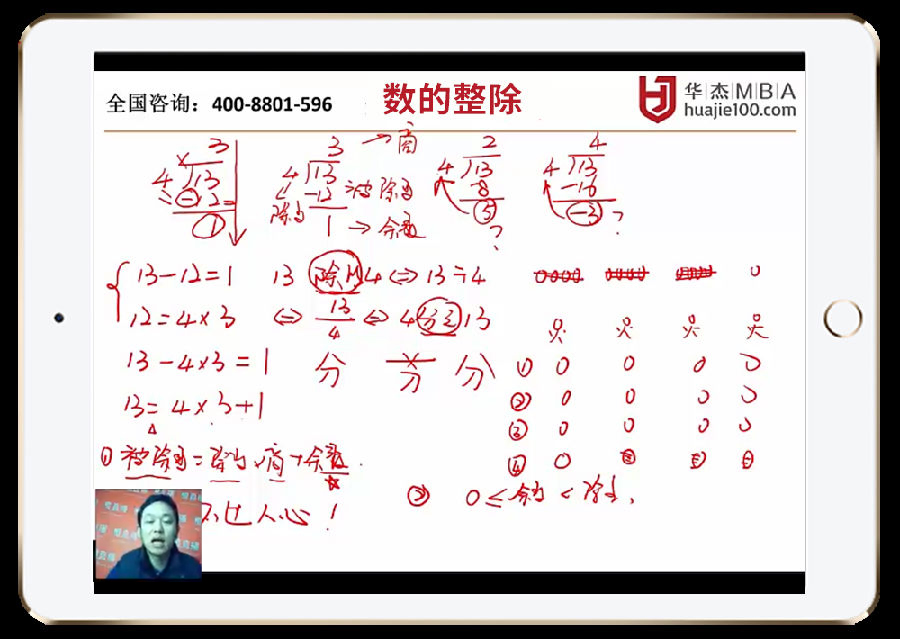 全国咨询：400-8801-596
数的整除
华杰MBA
huajie100.com
3
4 13
- 12
1
3 → 商
4 13
-12 被除数
除数
1 → 余数
2
4 13
8
5
?
4
4 13
-16
-3 ?
13-12=1
13 除以 4 ⇔ 13÷4
12=4×3
⇔ 13/4 ⇔ 4 13
13-4×3=1
分 分 分
13=4×3+1
① 被除数=除数×商+余数
② 0≤余数<除数
人心!
①
②
③
④